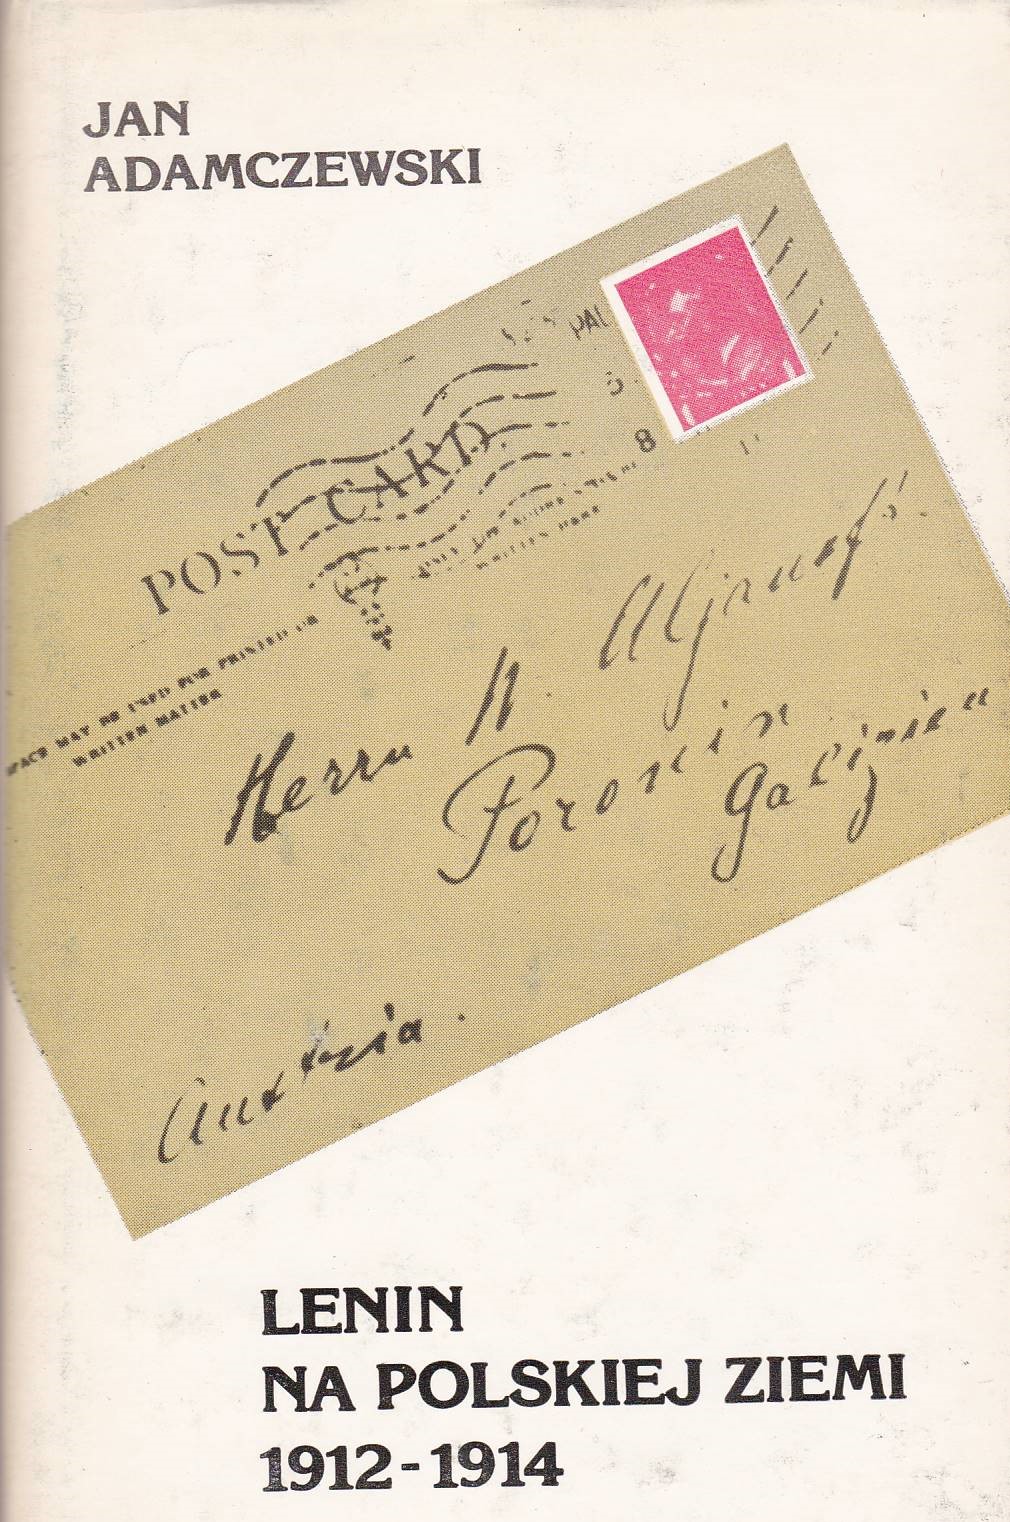 JAN
ADAMCZEWSKI
PAL
8
POST CARD.
SPACE MAY BE USED FOR PRINTED OR
WRITTEN MATTER
WRITTEN HERE
Herrn W. Uljanoff
Poronin
Galizien
Austria.
LENIN
NA POLSKIEJ ZIEMI
1912-1914